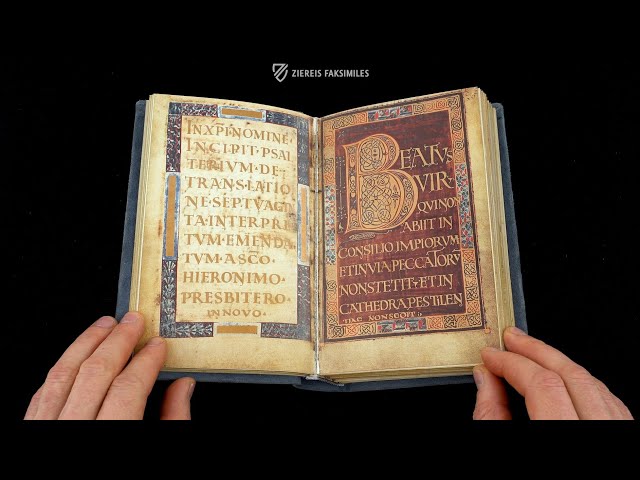 ZIEREIS FAKSIMILES
IN XPI NOMINE·
INCIPIT·PSAL
TERIUM·DE·
TRANSLATIO
NE·SEPTUAGIN
TA·INTERPRE
TUM·EMENDA
TUM·ASCO·
HIERONIMO·
PRESBITERO·
IN NOVO·
BEATUS
VIR·
QUI NON
ABIIT IN
CONSILIO, IMPIORUM
ET IN VIA PECCATORU
NON STETIT·ET IN
CATHEDRA PESTILEN
TIAE NON SEDIT·